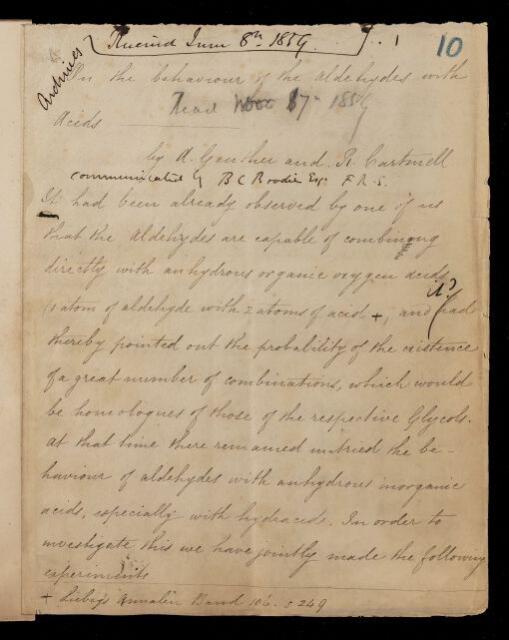 Received June 8th 1859.
10
Archives
On the behaviour of the aldehydes with
Read 1859
Acids
by A. Geuther and R. Cartmell
communicated by B C Brodie Esq. F. R. S.
It had been already observed by one of us
that the aldehydes are capable of combining
directly with anhydrous organic oxygen acids
(1 atom of aldehyde with 2 atoms of acid +, and it? had
thereby pointed out the probability of the existence
of a great number of combinations, which would
be homologues of those of the respective Glycols.
At that time there remained untried the be-
haviour of aldehydes with anhydrous inorganic
acids, especially with hydracids. In order to
investigate this we have jointly made the following
experiments
+ Liebig's Annalen Band 106. S 249